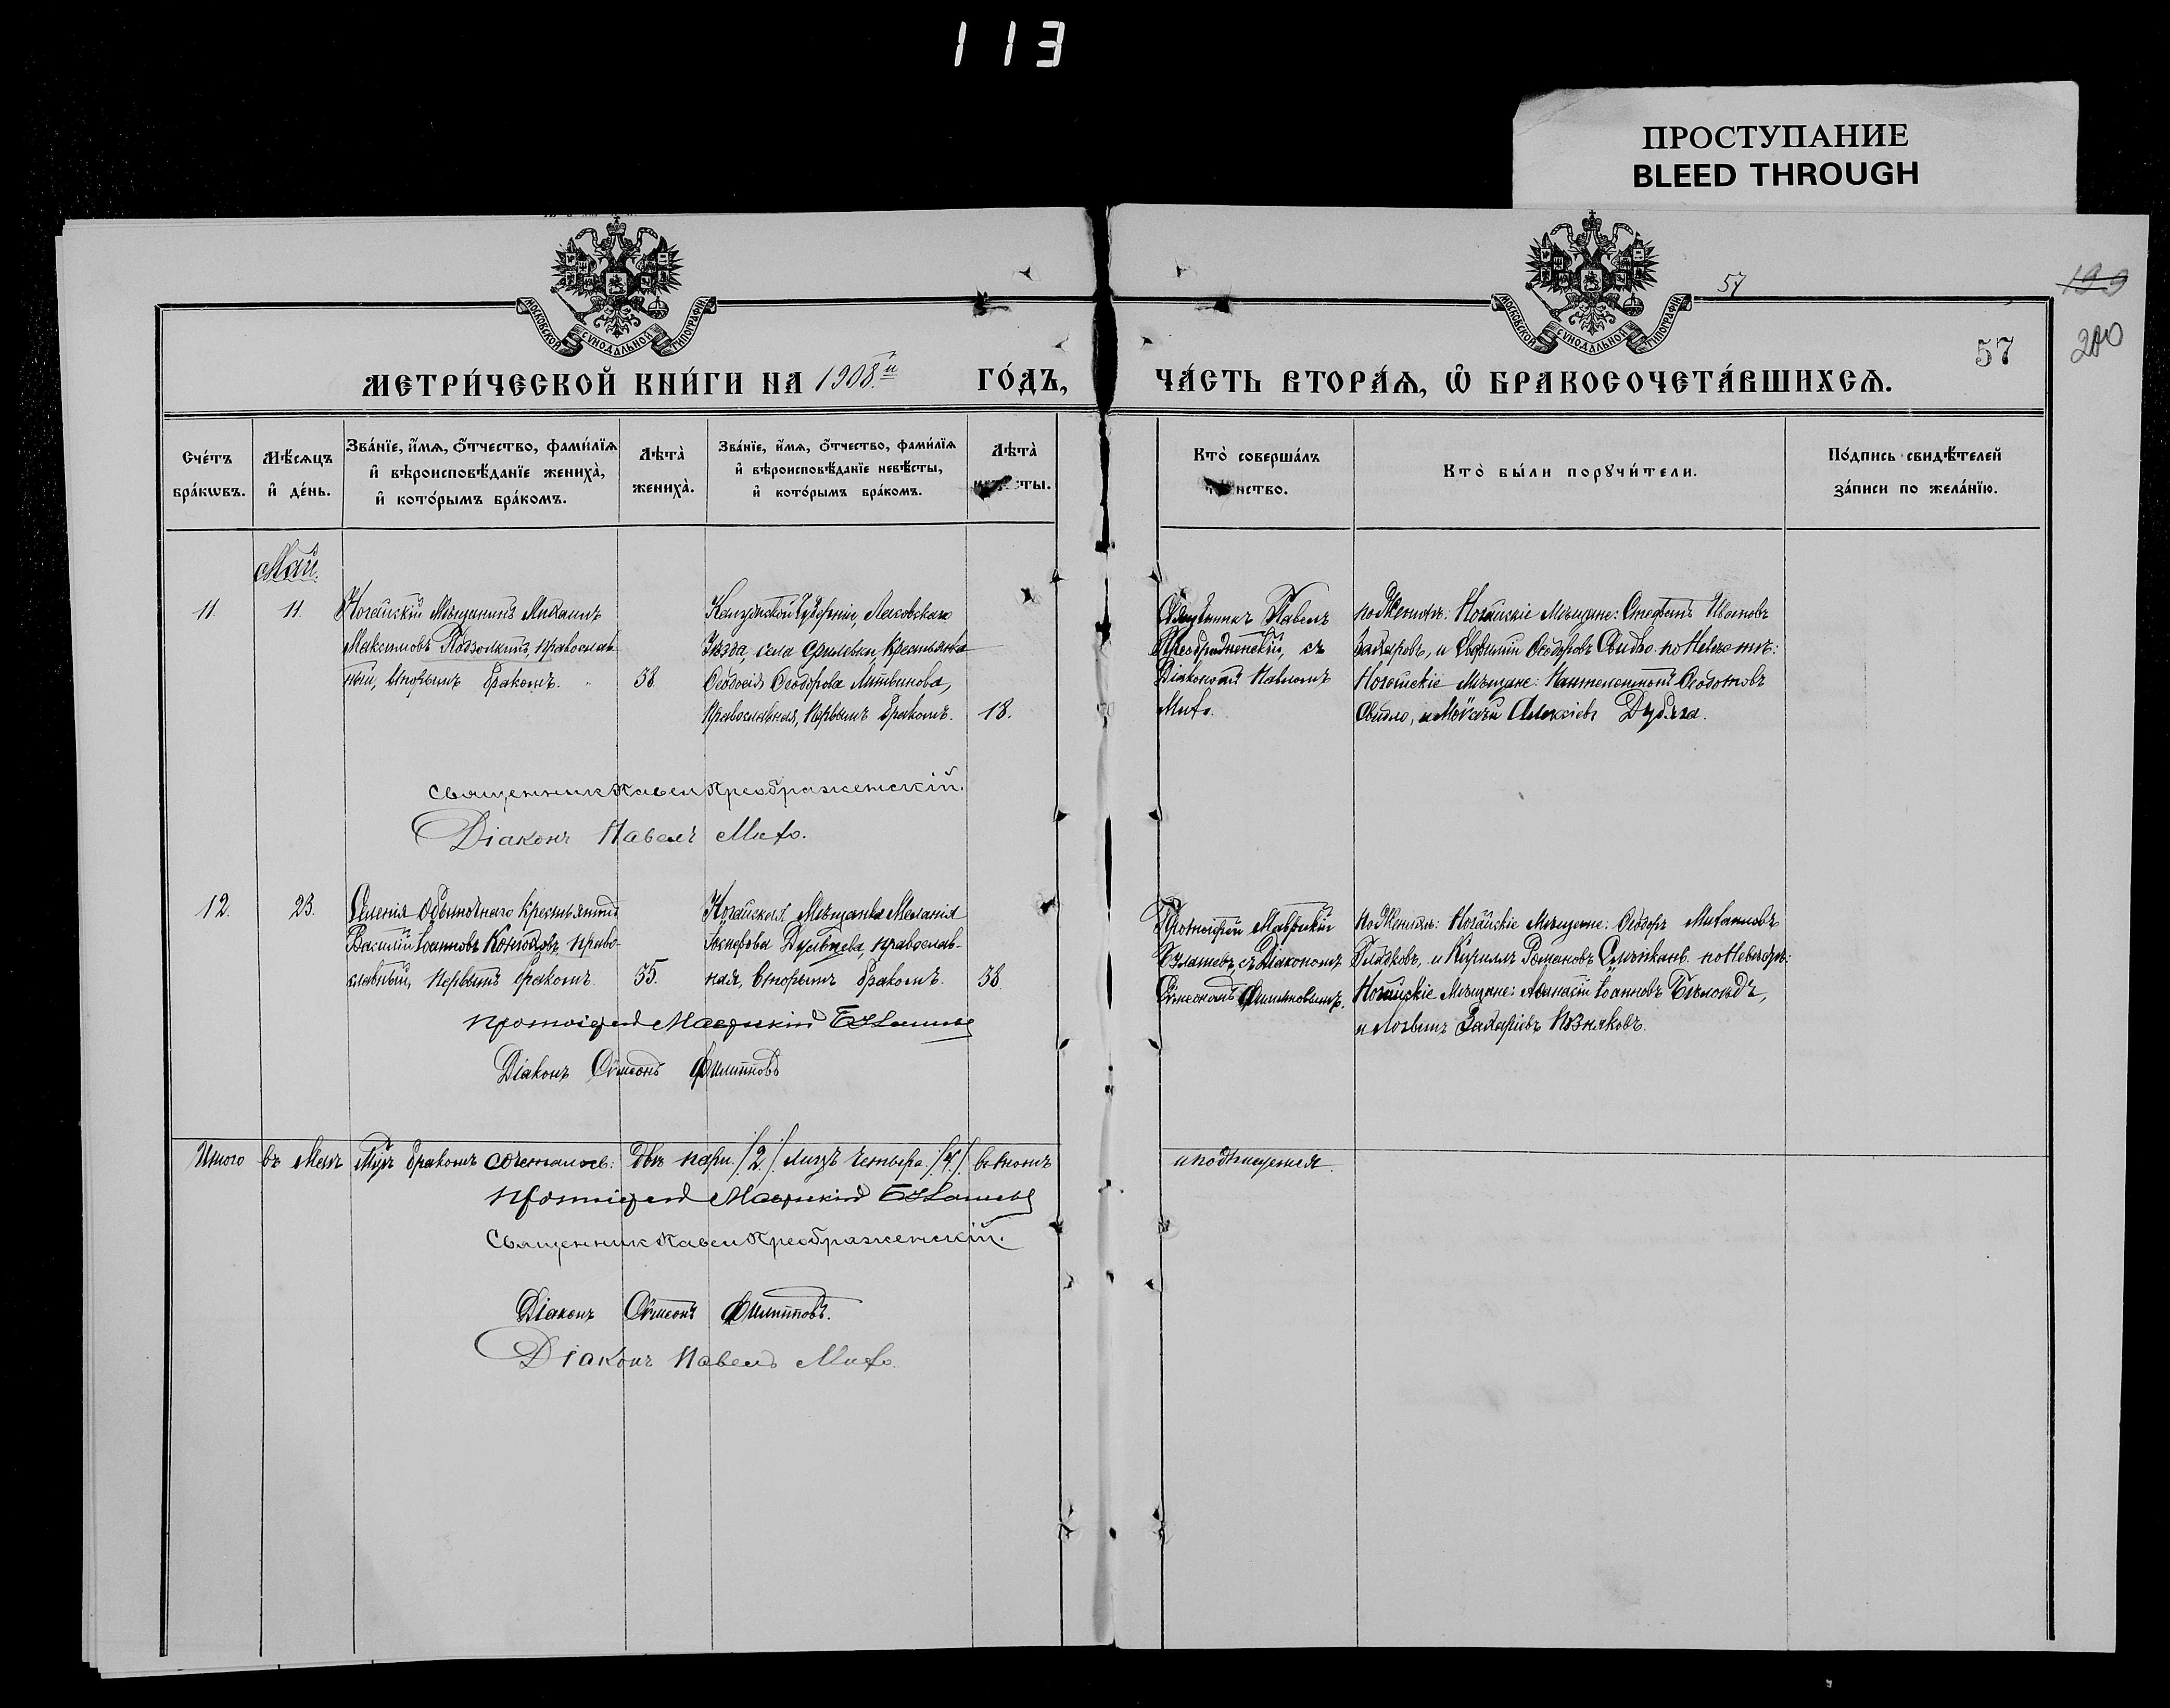 113
ПРОСТУПАНИЕ
BLEED THROUGH
МОСКОВСКОЙ СѴНОДАЛЬНОЙ ТИПОГРАФІИ
МОСКОВСКОЙ СѴНОДАЛЬНОЙ ТИПОГРАФІИ
57
199
200
57
МЕТРИ́ЧЕСКОЙ КНИ́ГИ НА 1908.й ГО́ДЪ, ЧА́СТЬ ВТОРА́Ѧ, Ѽ БРАКОСОЧЕТА́ВШИХСѦ.
Сче́тъ
бра́кѡвъ.
Мѣ́сѧцъ
и҆ де́нь.
Зва́нїе, и҆́мѧ, ѻ҆́тчество, фами́лїѧ
и҆ вѣроисповѣ́данїе жениха̀,
и҆ кото́рымъ бра́комъ.
Лѣта̀
жениха̀.
Зва́нїе, и҆́мѧ, ѻ҆́тчество, фами́лїѧ
и҆ вѣроисповѣ́данїе невѣ́сты,
и҆ кото́рымъ бра́комъ.
Лѣта̀
сты.
Кто̀ соверша́лъ
нство.
Кто̀ бы́ли порꙋчи́тели.
По́дпись свидѣ́телей
за́писи по жела́нїю.
Май.
11.
11.
Ногайскій Мѣщанинъ Михаилъ
Максимовъ православ-
ный, вторымъ бракомъ.
38.
Калужской Губерніи,
Уѣзда, села Крестьянка
Ѳеодосія Ѳеодорова Литвинова,
православная, первымъ бракомъ.
18.
Священникъ Павелъ
Преображенскій, съ
Діакономъ Павломъ
Михо.
по Женихѣ: Ногайскіе Мѣщане: Стефанъ Ивановъ
Захаровъ, и Евфимій Ѳеодоровъ Свидло. по Невѣстѣ:
Ногайскіе Мѣщане: Пантелеимонъ
Свидло, и Алексіевъ
Священник Павел Преображенскій.
Діаконъ Павелъ Михо.
12.
23.
Селенія Обыточнаго Крестьянинъ
Василій Іоанновъ право-
славный, первымъ бракомъ.
35.
Ногайская Мѣщанка Меланія
православ-
ная, вторымъ бракомъ.
38.
Протоіерей Маврикій
съ Діакономъ
Сѵмеономъ Филипповымъ.
по Женихѣ: Ногайскіе Мѣщане: Ѳеодоръ Михаиловъ
Гладковъ, и Кириллъ Романовъ по Невѣстѣ:
Ногайскіе Мѣщане: Аѳанасій Іоанновъ
и Логвинъ Захаріевъ Позняковъ.
Протоіерей Маврикій
Діаконъ Сѵмеонъ Филипповъ
Итого въ Маѣ Мцѣ бракомъ сочеталось: двѣ пары /2./ лицъ четыре. /4./ въ чемъ
и подпишемся.
Протоіерей Маврикій
Священник Павел Преображенскій.
Діаконъ Сѵмеонъ Филипповъ.
Діаконъ Павелъ Михо.